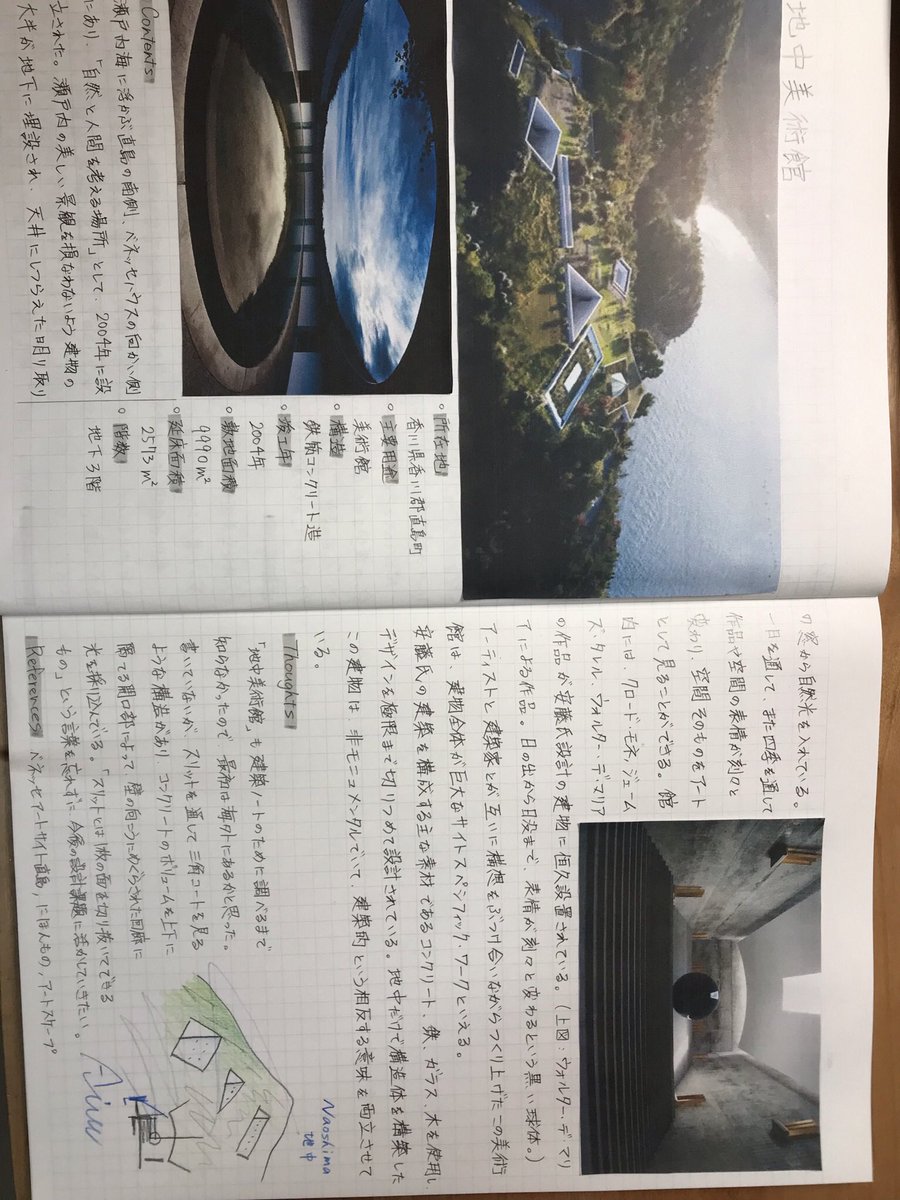 地中美術館
。所在地
香川県香川郡直島町
。主要用途
美術館
。構造
鉄筋コンクリート造
。竣工年
2004年
。敷地面積
9990㎡
。延床面積
2573㎡
。階数
地下3階
Contents
瀬戸内海に浮かぶ直島の南側、ベネッセハウスの向かい側
にあり、「自然と人間を考える場所」として、2004年に設
立された。瀬戸内の美しい景観を損なわないよう建物の
大半が地下に埋設され、天井にしつらえた明り取り
の窓から自然光を入れている。
一日を通して、また四季を通して
作品や空間の表情が刻々と
変わり、空間そのものをアート
として見ることができる。館
内には、クロード・モネ、ジェーム
ズ・タレル、ウォルター・デ・マリア
の作品が安藤氏設計の建物に恒久設置されている。（上図：ウォルター・デ・マリ
アによる作品。日の出から日没まで、表情が刻々と変わるという黒い球体。）
アーティストと建築家とが互いに構想をぶつけ合いながらつくり上げたこの美術
館は、建物全体が巨大なサイトスペシフィック・ワークといえる。
安藤氏の建築を構成する主な素材であるコンクリート、鉄、ガラス、木を使用し
デザインを極限まで切りつめて設計されている。地中だけで構造体を構築した
この建物は、非モニュメンタルでいて、建築的という相反する意味を両立させて
いる。
Thoughts
「地中美術館」も建築ノートのために調べるまで
知らなかったので、最初は海外にあるかと思った。
書いていないが、スリットを通して三角コートを見る
ような構造があり、コンクリートのボリュームを上下に
隔てる開口部によって、壁の向こうにめぐらされた回廊に
光を採り込んでいる。「スリットとは
の面を切り抜いてできる
もの」という言葉を忘れずに、今後の設計課題に活かしていきたい。
References ベネッセアートサイト直島, にほんもの, アートスケープ
Naoshima
地中